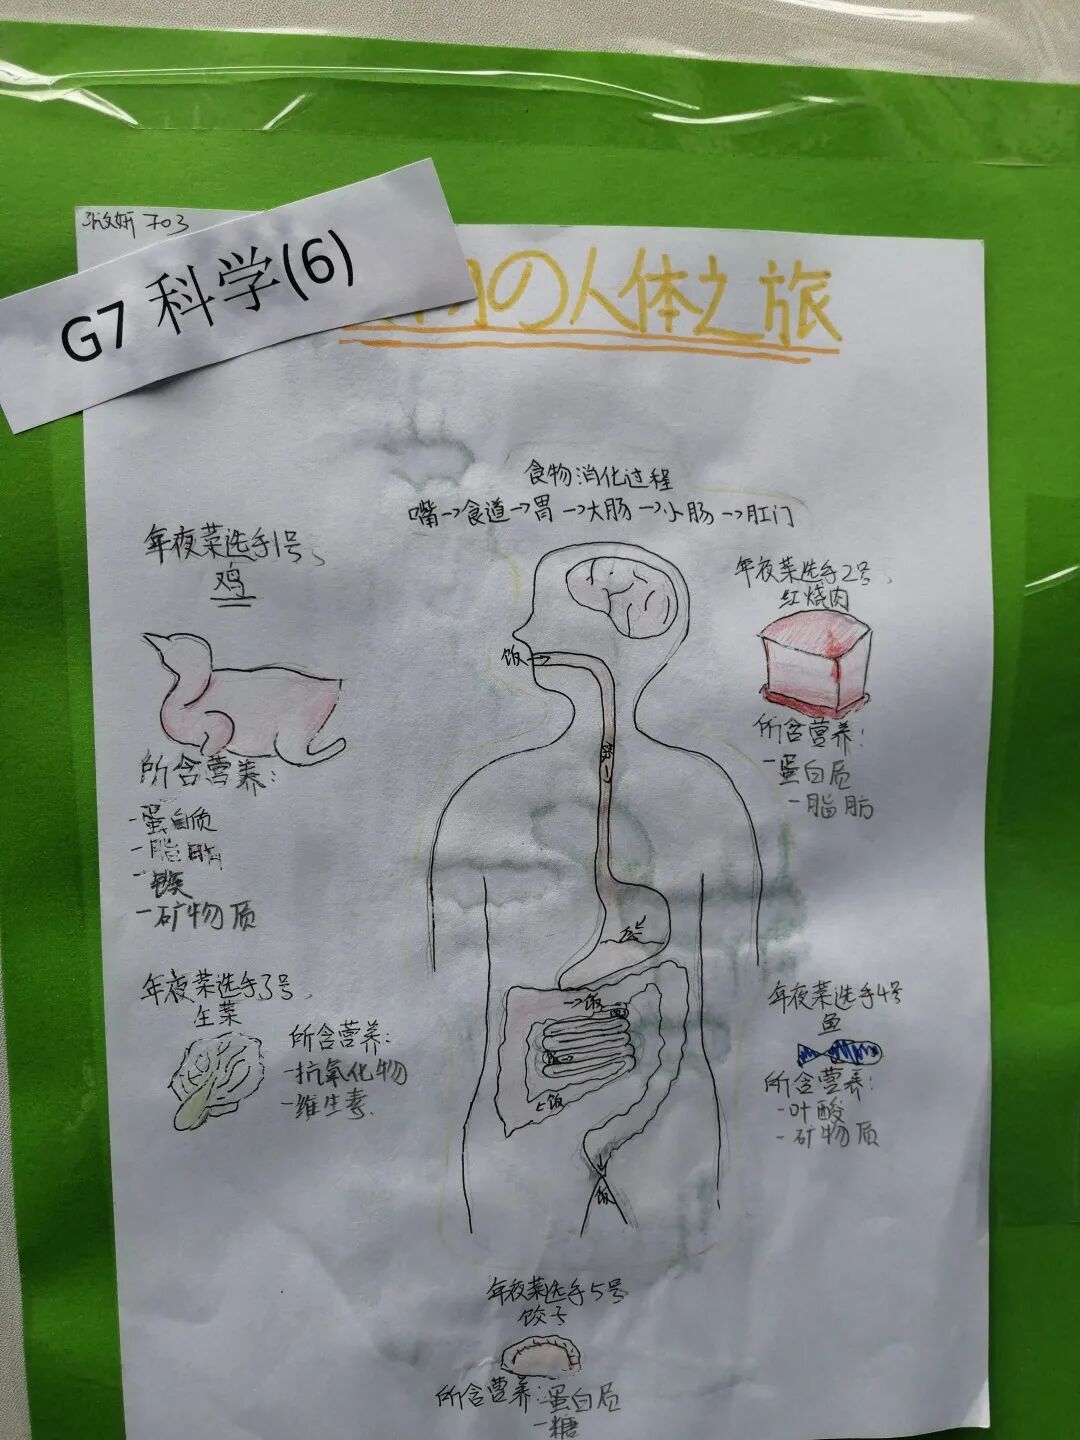 703
G7 科学(6)
の人体之旅
食物消化过程
嘴→食道→胃→大肠→小肠→肛门
年夜菜选手1号、
鸡
所含营养:
-蛋白质
-脂肪
-铁
-矿物质
年夜菜选手2号、
红烧肉
所含营养:
-蛋白质
-脂肪
饭→
年夜菜选手3号、
生菜
所含营养:
-抗氧化物
-维生素.
→饭
饭
饭
年夜菜选手4号
鱼
所含营养:
-叶酸
-矿物质
年夜菜选手5号
饺子
所含营养:-蛋白质
-糖